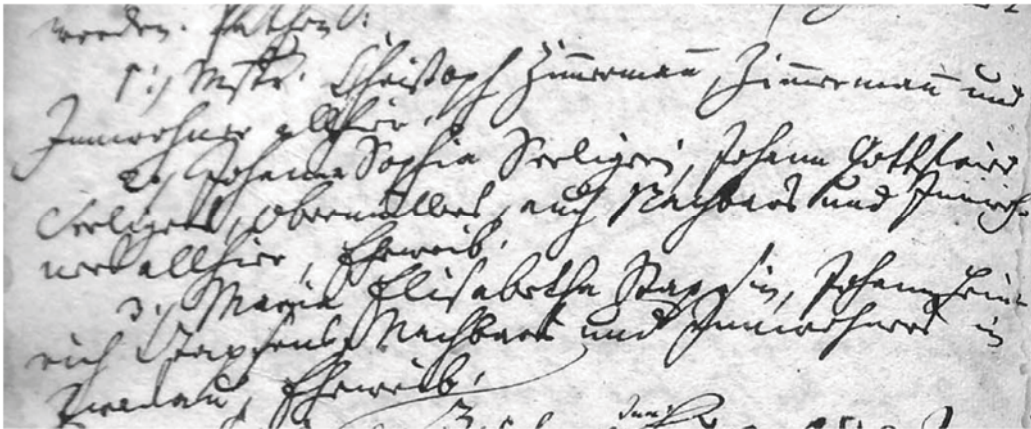 worden. Pathen:
1:, Mstr. Christoph Zimmermañ, Zimmermañ und
Innwohner allhier.
2:, Johanna Sophia Seeligerin, Johann Gottfried
Seeligers, Obermüllers, auch Nachbars und Innwoh-
ners allhier, Eheweib.
3:, Maria Elisabetha Stapsin, Johann Hein-
rich Stapsens, Nachbars und Innwohners in
Eheweib.